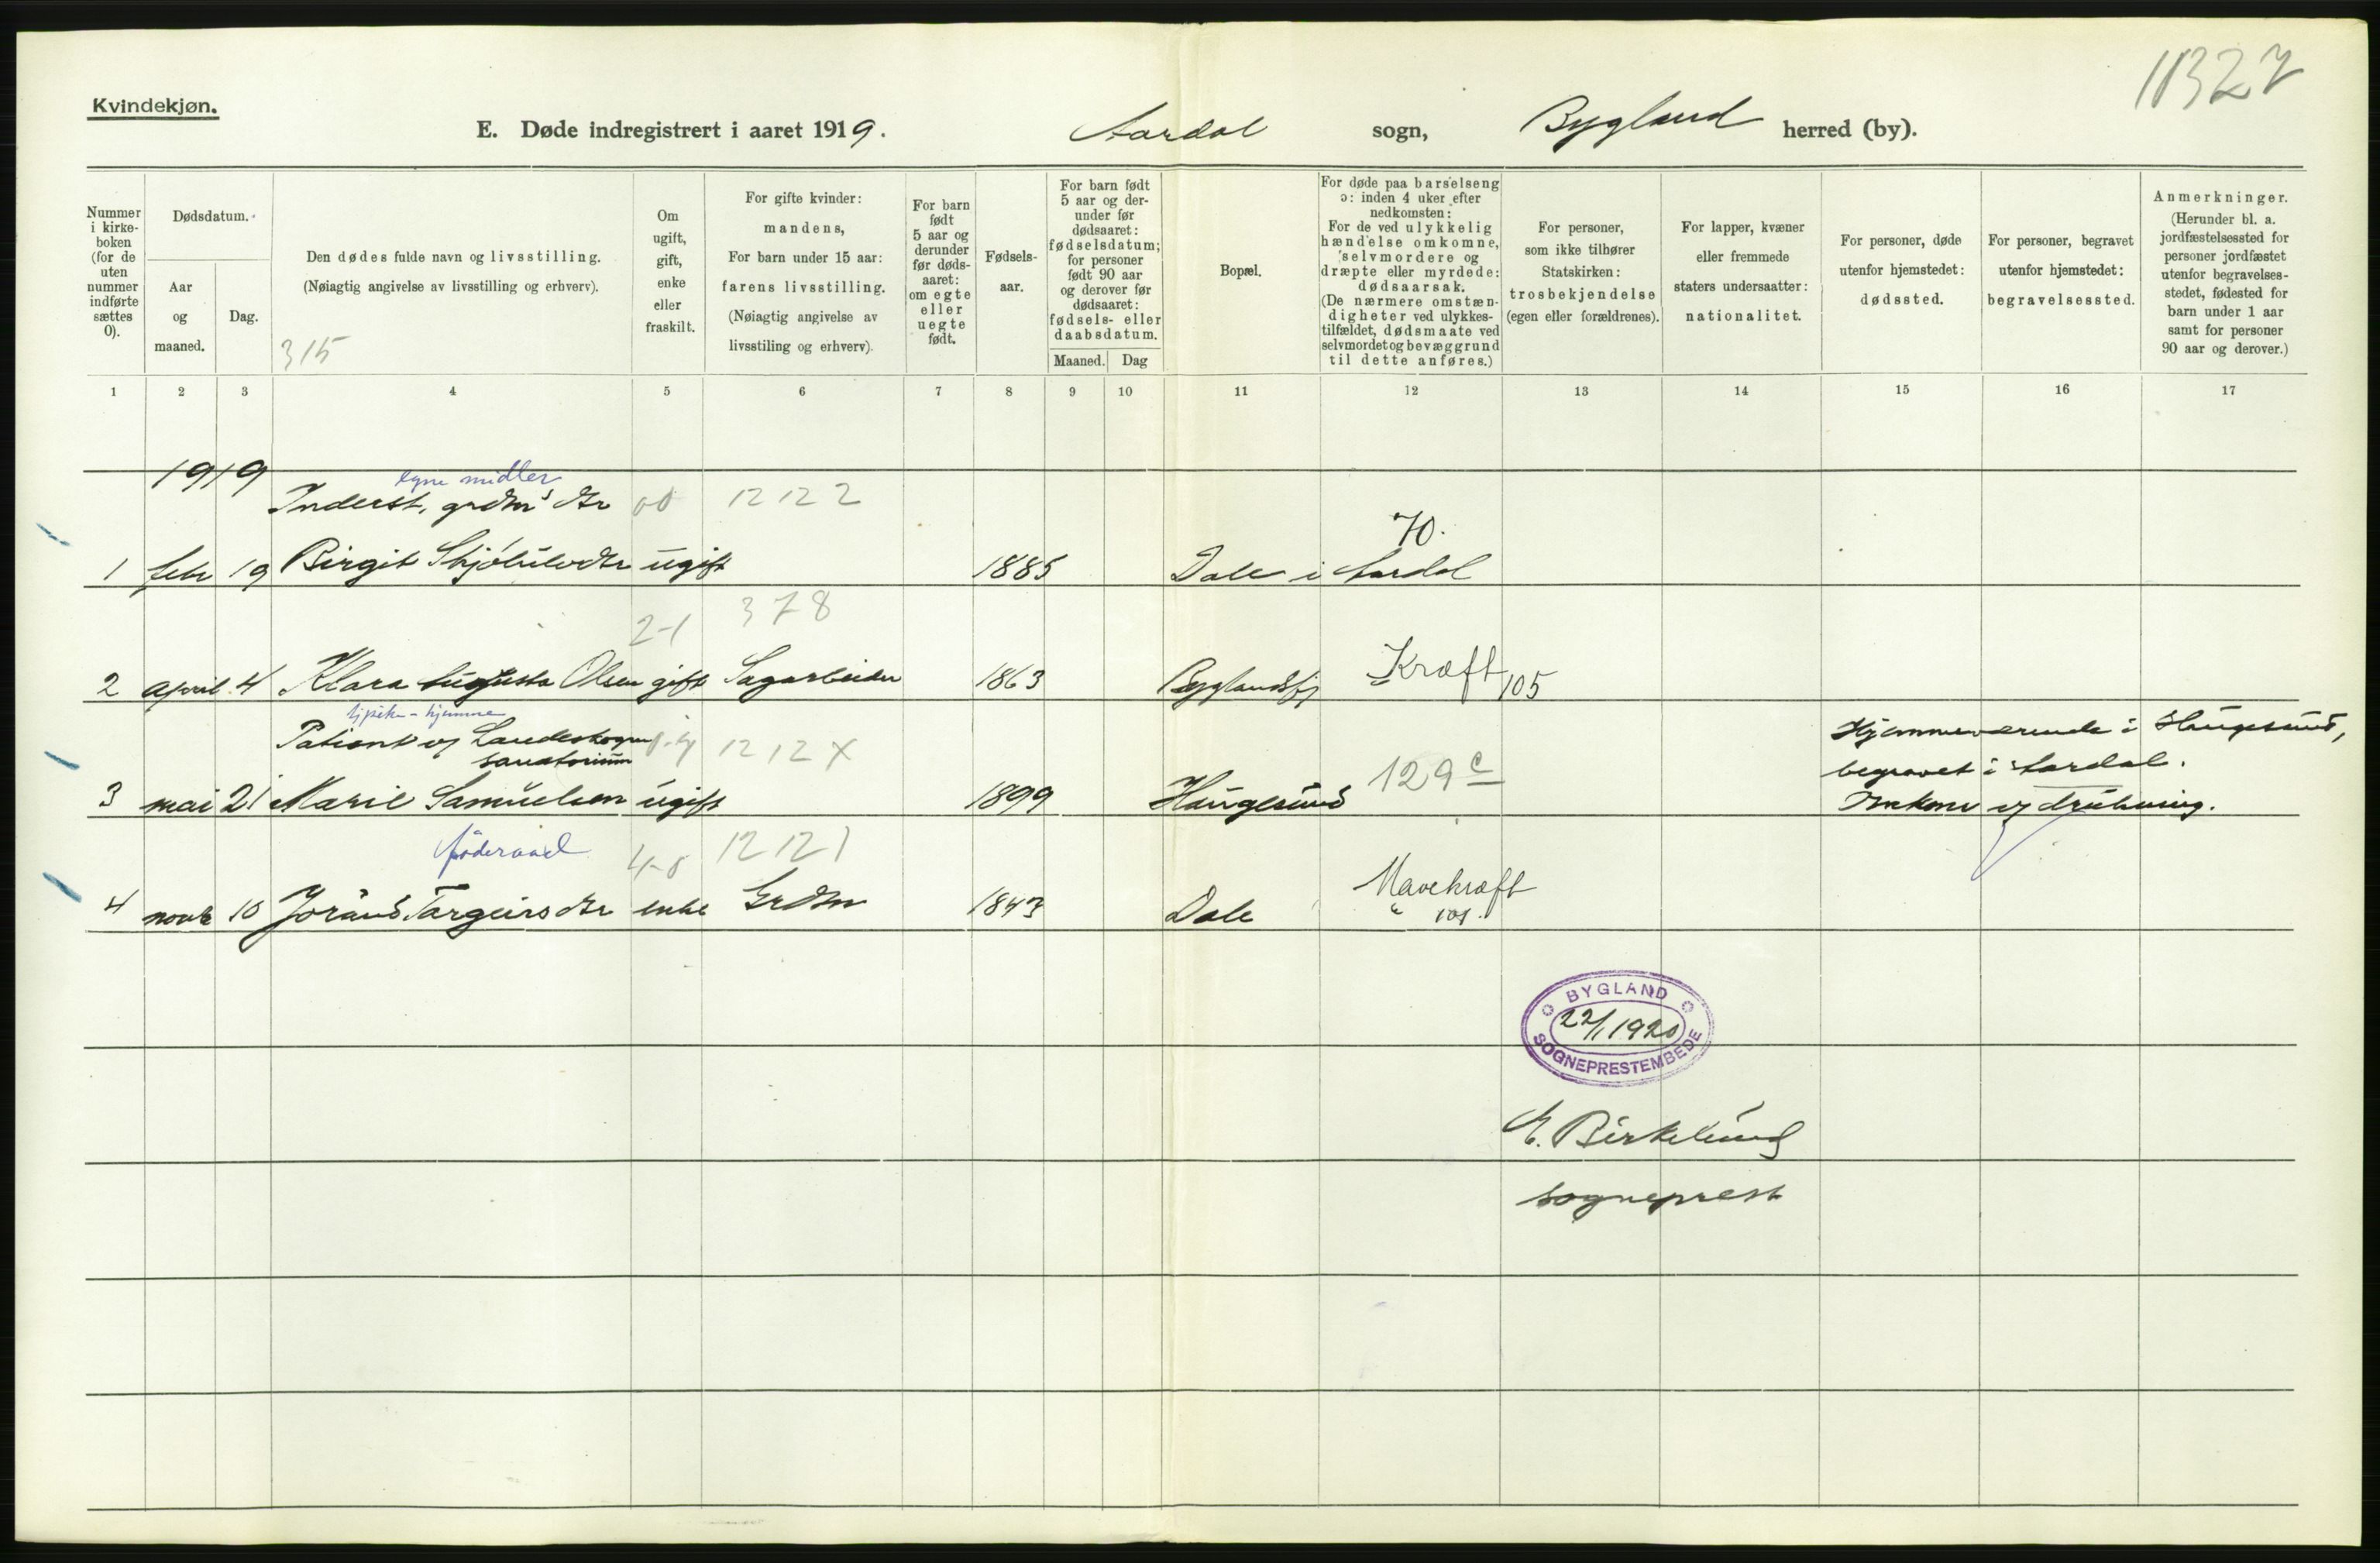 11327
Kvindekjøn.
E. Døde indregistrert i aaret 1919. Aardal sogn, Bygland herred (by).
Nummer
i kirke-
boken
(for de
uten
nummer
indførte
sættes
0).
Dødsdatum.
Aar
og
maaned.
Dag.
Den dødes fulde navn og livsstilling.
(Nøiagtig angivelse av livsstilling og erhverv).
315
Om
ugift,
gift,
enke
eller
fraskilt.
For gifte kvinder:
mandens,
For barn under 15 aar:
farens livsstilling.
(Nøiagtig angivelse av
livsstiling og erhverv).
For barn
født
5 aar og
derunder
før døds-
aaret:
om egte
eller
uegte
født.
Fødsels-
aar.
For barn født
5 aar og der-
under før
dødsaaret:
fødselsdatum;
for personer
født 90 aar
og derover før
dødsaaret:
fødsels- eller
daabsdatum.
Maaned. Dag
Bopæl.
For døde paa barselseng
ɔ: inden 4 uker efter
nedkomsten:
For de ved ulykkelig
hændelse omkomne,
selvmordere og
dræpte eller myrdede:
dødsaarsak.
(De nærmere omstæn-
digheter ved ulykkes-
tilfældet, dødsmaate ved
selvmordet og bevæggrund
til dette anføres.)
For personer,
som ikke tilhører
Statskirken:
trosbekjendelse
(egen eller forældrenes).
For lapper, kvæner
eller fremmede
staters undersaatter:
nationalitet.
For personer, døde
utenfor hjemstedet:
dødssted.
For personer, begravet
utenfor hjemstedet:
begravelsessted.
Anmerkninger.
(Herunder bl. a.
jordfæstelsessted for
personer jordfæstet
utenfor begravelses-
stedet, fødested for
barn under 1 aar
samt for personer
90 aar og derover.)
1 2 3 4 5 6 7 8 9 10 11 12 13 14 15 16 17
1919
egne midler
Inderst, grdm's dtr 00 12 12 2
70.
1 febr 19 Birgit ugift 1885 Dale i Aardal
2-1 378
2 april 4 Klara Augusta Olsen gift Sagarbeider 1863 Byglandsfj Kræft 105
hjemme
Patient Landeskogen
sanatorium
12 12 X
129 c
Hjemmeværende i Haugesund,
begravet i Aardal.
3 mai 21 Marie Samuelsen ugift 1899 Haugesund
føderaad 4-0 12 12 1
4 novb 10 Joraand Targeirsdtr enke Grdm 1843 Dale Mavekræft
101.
BYGLAND
22/1 1920
SOGNEPRESTEMBEDE
Birkelund
sogneprest